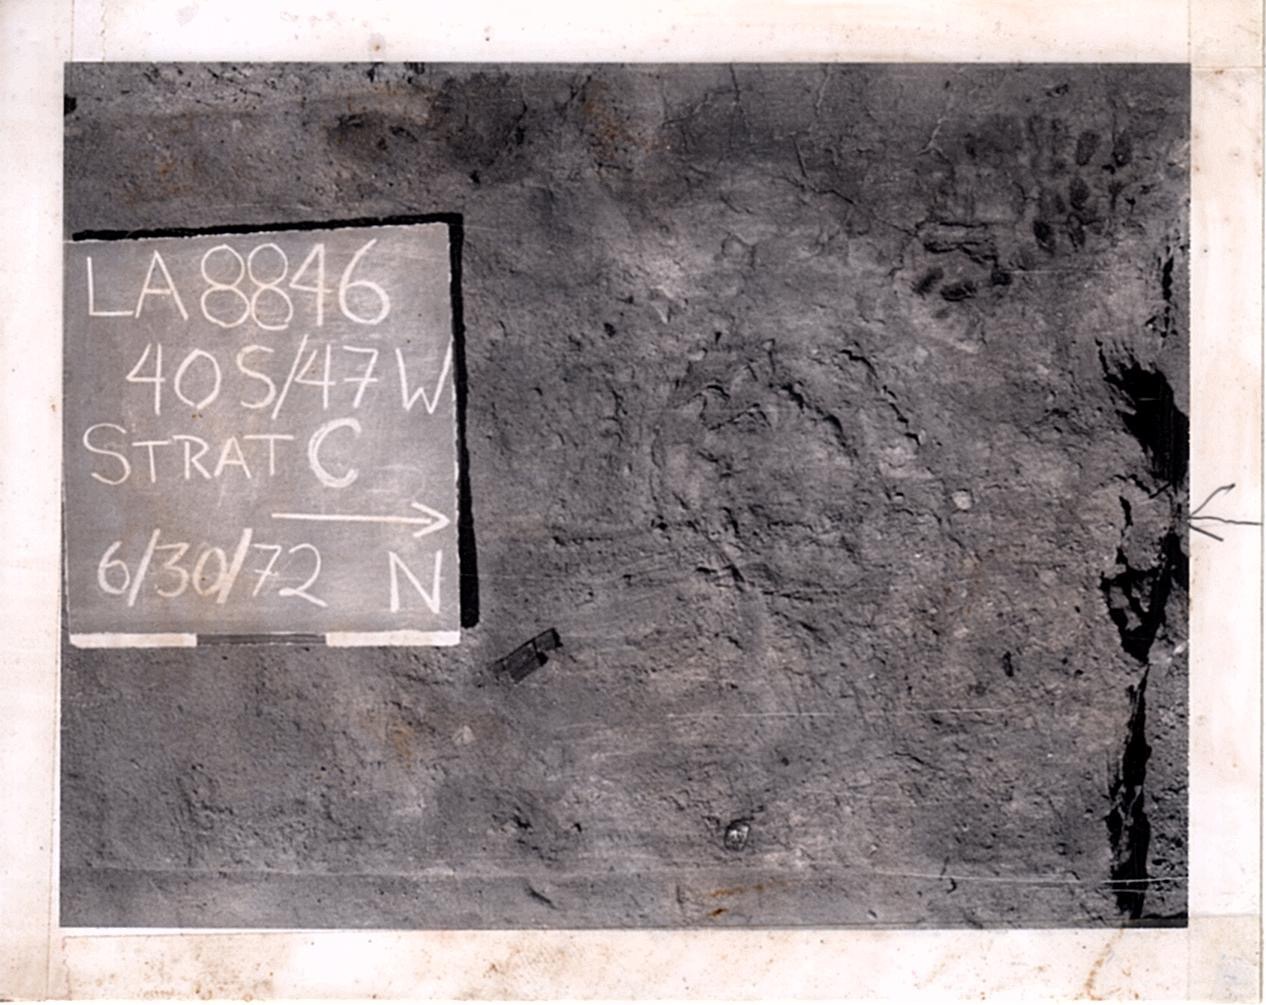 LA 8846
40S/47W
STRAT C
6/30/72 N